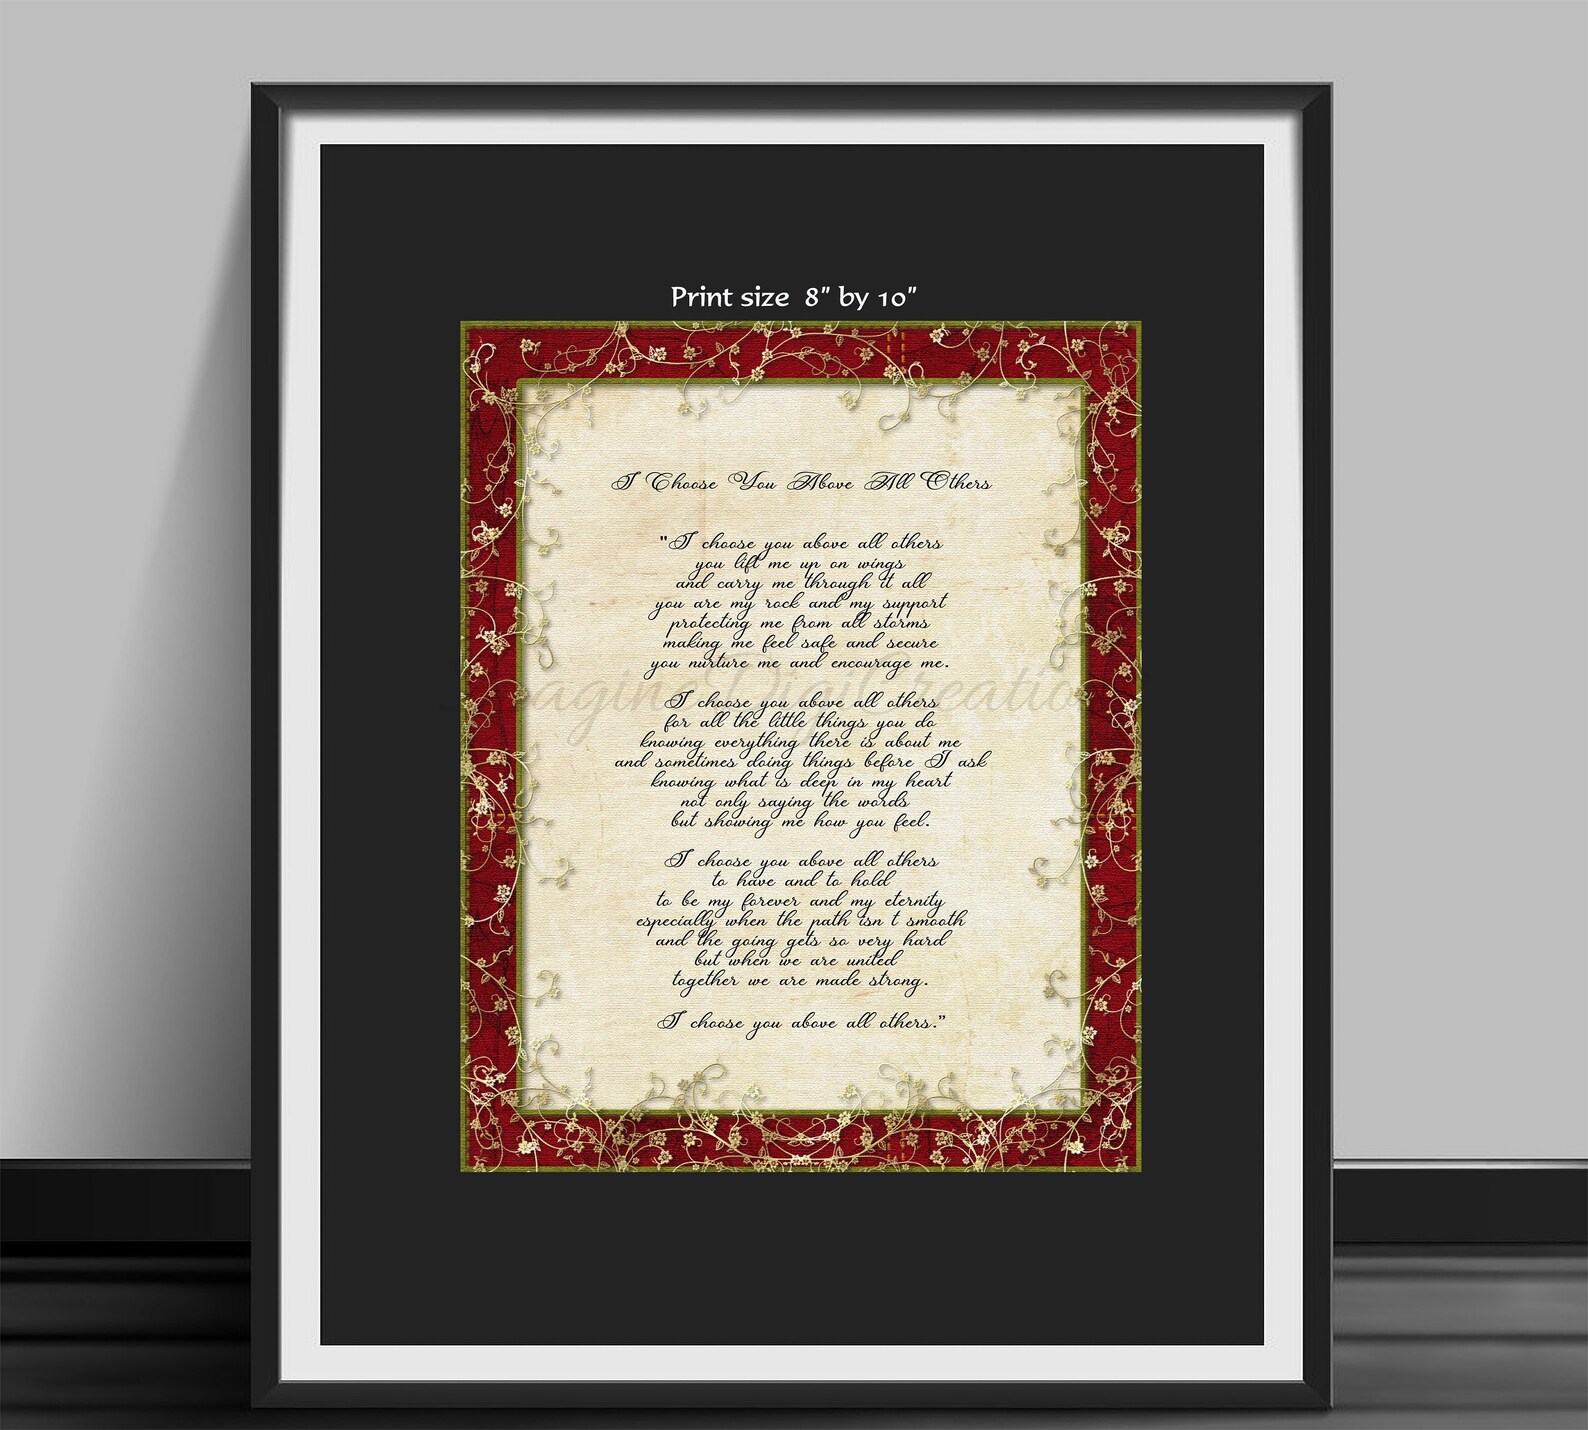 Print size 8" by 10"
I Choose You Above All Others
"I choose you above all others
you lift me up on wings
and carry me through it all
you are my rock and my support
protecting me from all storms
making me feel safe and secure
you nurture me and encourage me.
ImagineDigiCreations
I choose you above all others
for all the little things you do
knowing everything there is about me
and sometimes doing things before I ask
knowing what is deep in my heart
not only saying the words
but showing me how you feel.
I choose you above all others
to have and to hold
to be my forever and my eternity
especially when the path isn t smooth
and the going gets so very hard
but when we are united
together we are made strong.
I choose you above all others."